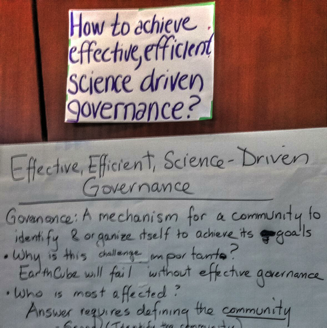 How to achieve
effective, efficient
science driven
governance?
Effective, Efficient, Science-Driven
Governance
Governance: A mechanism for a community to
identify & organize itself to achieve its goals
• Why is this challenge important?
EarthCube will fail without effective governance
• Who is most affected?
Answer requires defining the community